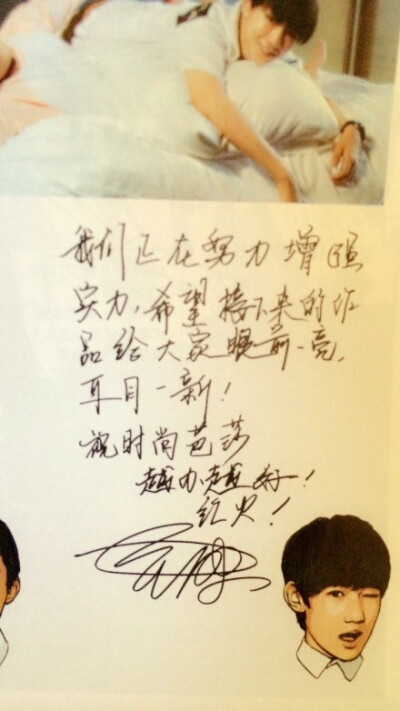 我们正在努力增强
实力，希望接下来的作
品给大家眼前一亮，
耳目一新！
祝时尚芭莎
越办越好！
红火！